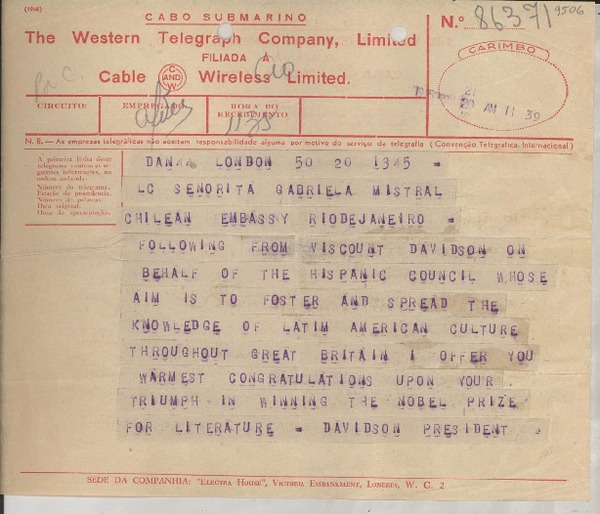 (1946)
CABO SUBMARINO
The Western Telegraph Company, Limited
FILIADA Á
Cable AND Wireless Limited.
N.º 86371 9506
CARIMBO
20 AM 11 39
CIRCUITO:
EMPREGADO
HORA DO RECEBIMENTO
N. B. — As empresas telegráficas não aceitam responsabilidade alguma por motivo do serviço da telegrafia (Convenção Telegrafica Internacional)
A primeira linha deste
telegrama contem as seguintes informações, na
ordem indicada:
Número do telegrama.
Estação de procedencia.
Número de palavras.
Data original.
Hora de apresentação.
LONDON 50 20 1345 =
LC SENORITA GABRIELA MISTRAL
CHILEAN EMBASSY RIODEJANEIRO =
FOLLOWING FROM VISCOUNT DAVIDSON ON
BEHALF OF THE HISPANIC COUNCIL WHOSE
AIM IS TO FOSTER AND SPREAD THE
KNOWLEDGE OF LATIM AMERICAN CULTURE
THROUGHOUT GREAT BRITAIN I OFFER YOU
WARMEST CONGRATULATIONS UPON YOUR
TRIUMPH IN WINNING THE NOBEL PRIZE
FOR LITERATURE = DAVIDSON PRESIDENT
SEDE DA COMPANHIA: "ELECTRA HOUSE", VICTORIA EMBANKMENT, LONDRES, W. C. 2